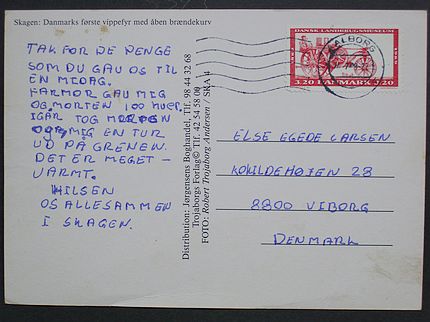 Skagen: Danmarks første vippefyr med åben brændekurv
TAK FOR DE PENGE
SOM DU GAV OS TIL
EN MIDAG.
FARMOR GAV MIG
OG MORTEN 100 HVER.
IGÅR TOG MORTEN
OG MIG EN TUR
UD PÅ GRENEN.
DET ER MEGET -
VARMT.
HILSEN
OS ALLESAMMEN
I SKAGEN.
Distribution: Jørgensens Boghandel, Tlf. 98 44 32 68
Trojaborgs Forlag© Tlf. 42 54 58 00
FOTO: Robert Trojaborg Andersen SKA 4
DANSK LANDBRUGSMUSEUM
3.20 DANMARK 3.20
AALBORG
ELSE EGEDE LARSEN
KOVILDEHØJEN 28
8800 VIBORG
DENMARK